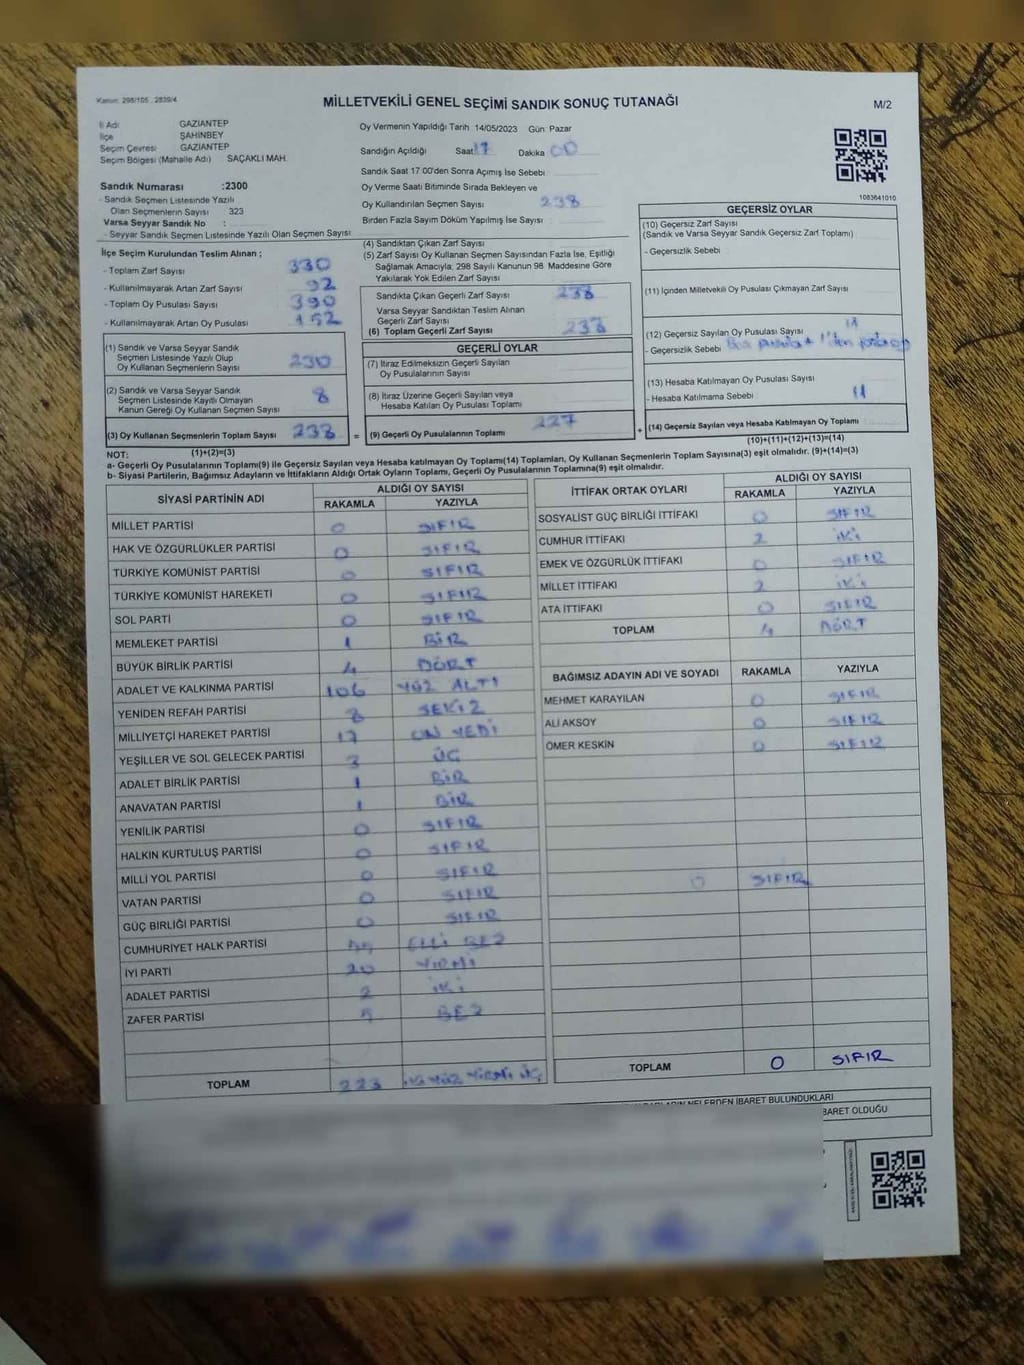 Kanun: 298/105 , 2839/4
MİLLETVEKİLİ GENEL SEÇİMİ SANDIK SONUÇ TUTANAĞI
M/2
İl Adı GAZİANTEP
İlçe ŞAHİNBEY
Seçim Çevresi GAZİANTEP
Seçim Bölgesi (Mahalle Adı) SAÇAKLI MAH.
Sandık Numarası :2300
- Sandık Seçmen Listesinde Yazılı
Olan Seçmenlerin Sayısı 323
Varsa Seyyar Sandık No :
- Seyyar Sandık Seçmen Listesinde Yazılı Olan Seçmen Sayısı:
Oy Vermenin Yapıldığı Tarih 14/05/2023 Gün Pazar
Sandığın Açıldığı Saat 17 Dakika 00
Sandık Saat 17 00'den Sonra Açımış İse Sebebi
Oy Verme Saati Bitiminde Sırada Bekleyen ve
Oy Kullandırılan Seçmen Sayısı 238
Birden Fazla Sayım Döküm Yapılmış İse Sayısı
1083641010
İlçe Seçim Kurulundan Teslim Alınan ;
- Toplam Zarf Sayısı 330
- Kullanılmayarak Artan Zarf Sayısı 92
- Toplam Oy Pusulası Sayısı 390
- Kullanılmayarak Artan Oy Pusulası 152
(1) Sandık ve Varsa Seyyar Sandık
Seçmen Listesinde Yazılı Olup
Oy Kullanan Seçmenlerin Sayısı 230
(2) Sandık ve Varsa Seyyar Sandık
Seçmen Listesinde Kayıtlı Olmayan
Kanun Gereği Oy Kullanan Seçmen Sayısı 8
(3) Oy Kullanan Seçmenlerin Toplam Sayısı 238 =
(1)+(2)=(3)
(4) Sandıktan Çıkan Zarf Sayısı
(5) Zarf Sayısı Oy Kullanan Seçmen Sayısından Fazla İse, Eşitliği
Sağlamak Amacıyla; 298 Sayılı Kanunun 98. Maddesine Göre
Yakılarak Yok Edilen Zarf Sayısı
Sandıkta Çıkan Geçerli Zarf Sayısı 238
Varsa Seyyar Sandıktan Teslim Alınan
Geçerli Zarf Sayısı
(6) Toplam Geçerli Zarf Sayısı 238
GEÇERLİ OYLAR
(7) İtiraz Edilmeksizin Geçerli Sayılan
Oy Pusulalarının Sayısı
(8) İtiraz Üzerine Geçerli Sayılan veya
Hesaba Katılan Oy Pusulası Toplamı
(9) Geçerli Oy Pusulalarının Toplamı 227 +
GEÇERSİZ OYLAR
(10) Geçersiz Zarf Sayısı
(Sandık ve Varsa Seyyar Sandık Geçersiz Zarf Toplamı)
- Geçersizlik Sebebi
(11) İçinden Milletvekili Oy Pusulası Çıkmayan Zarf Sayısı
(12) Geçersiz Sayılan Oy Pusulası Sayısı 11
- Geçersizlik Sebebi
(13) Hesaba Katılmayan Oy Pusulası Sayısı
- Hesaba Katılmama Sebebi 11
(14) Geçersiz Sayılan veya Hesaba Katılmayan Oy Toplamı
(10)+(11)+(12)+(13)=(14)
NOT:
a- Geçerli Oy Pusulalarının Toplamı(9) ile Geçersiz Sayılan veya Hesaba katılmayan Oy Toplamı(14) Toplamları, Oy Kullanan Seçmenlerin Toplam Sayısına(3) eşit olmalıdır. (9)+(14)=(3)
b- Siyasi Partilerin, Bağımsız Adayların ve İttifakların Aldığı Ortak Oyların Toplamı, Geçerli Oy Pusulalarının Toplamına(9) eşit olmalıdır.
SİYASİ PARTİNİN ADI ALDIĞI OY SAYISI
RAKAMLA YAZIYLA
MİLLET PARTİSİ 0 SIFIR
HAK VE ÖZGÜRLÜKLER PARTİSİ 0 SIFIR
TÜRKİYE KOMÜNİST PARTİSİ 0 SIFIR
TÜRKİYE KOMÜNİST HAREKETİ 0 SIFIR
SOL PARTİ 0 SIFIR
MEMLEKET PARTİSİ 1 BİR
BÜYÜK BİRLİK PARTİSİ 4 DÖRT
ADALET VE KALKINMA PARTİSİ 106 YÜZ ALTI
YENİDEN REFAH PARTİSİ 8 SEKİZ
MİLLİYETÇİ HAREKET PARTİSİ 17 ON YEDİ
YEŞİLLER VE SOL GELECEK PARTİSİ 3 ÜÇ
ADALET BİRLİK PARTİSİ 1 BİR
ANAVATAN PARTİSİ 1 BİR
YENİLİK PARTİSİ 0 SIFIR
HALKIN KURTULUŞ PARTİSİ 0 SIFIR
MİLLİ YOL PARTİSİ 0 SIFIR
VATAN PARTİSİ 0 SIFIR
GÜÇ BİRLİĞİ PARTİSİ 0 SIFIR
CUMHURİYET HALK PARTİSİ 55 ELLİ BEŞ
İYİ PARTİ 20 YİRMİ
ADALET PARTİSİ 2 İKİ
ZAFER PARTİSİ 5 BEŞ
TOPLAM 223 İKİ YÜZ YİRMİ ÜÇ
İTTİFAK ORTAK OYLARI ALDIĞI OY SAYISI
RAKAMLA YAZIYLA
SOSYALİST GÜÇ BİRLİĞİ İTTİFAKI 0 SIFIR
CUMHUR İTTİFAKI 2 İKİ
EMEK VE ÖZGÜRLÜK İTTİFAKI 0 SIFIR
MİLLET İTTİFAKI 2 İKİ
ATA İTTİFAKI 0 SIFIR
TOPLAM 4 DÖRT
BAĞIMSIZ ADAYIN ADI VE SOYADI RAKAMLA YAZIYLA
MEHMET KARAYILAN 0 SIFIR
ALİ AKSOY 0 SIFIR
ÖMER KESKİN 0 SIFIR
0 SIFIR
TOPLAM 0 SIFIR
NELERDEN İBARET BULUNDUKLARI
İBARET OLDUĞU